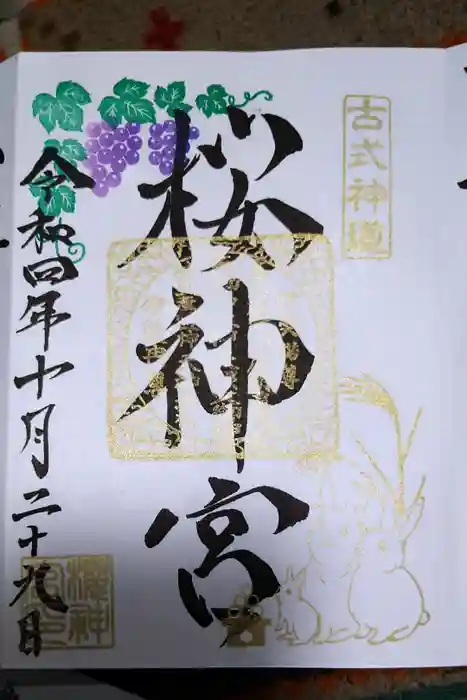 古式神道
桜神宮
令和四年十月二十九日